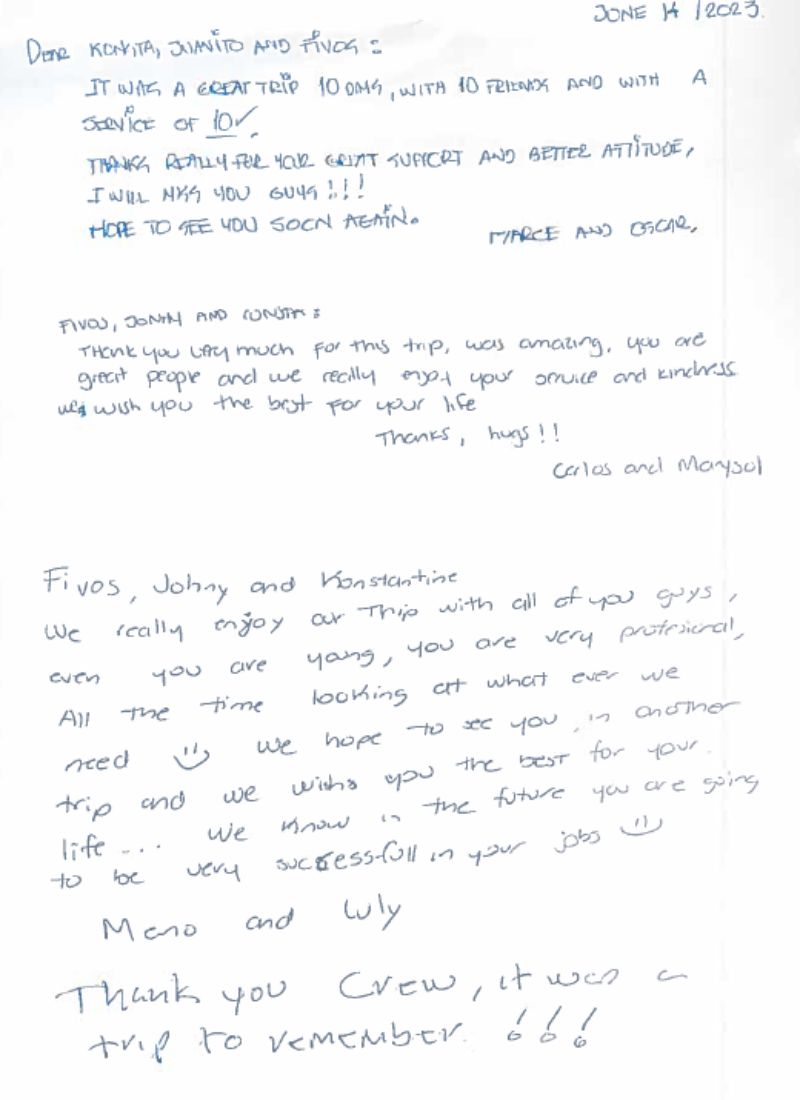 JUNE 14 / 2023.
Dear KONITA, JUANITO AND FIVOS :
IT WAS A GREAT TRIP 10 DAYS, WITH 10 FRIENDS AND WITH A
SERVICE OF 10✓.
THANKS REALLY FOR YOUR GREAT SUPPORT AND BETTER ATTITUDE,
I WILL MISS YOU GUYS !!!
HOPE TO SEE YOU SOON AGAIN.
MARCE AND OSCAR,
FIVOS, JONNY AND :
THANK you very much for this trip, was amazing, you are
great people and we really enjoy your service and kindness
we wish you the best for your life
Thanks, hugs !!
Carlos and Marysol
Fivos, Johny and Konstantine
We really enjoy our Trip with all of you guys,
even you are yang, you are very profesional,
All the time looking at what ever we
need :) we hope to see you in another
trip and we wishs you the best for your
life... we know in the future you are going
to be very successfull in your jobs :)
and Luly
Thank you Crew, it was a
trip to remember. !!!